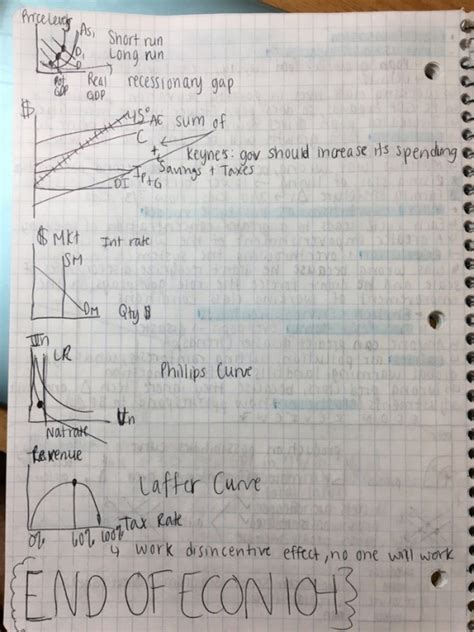 Price level
AS,
Short run
Long run
D,
D
Pot GDP
Real GDP
recessionary gap
$
45°
AE
sum of
C
+
Keynes: gov should increase its spending
Savings + Taxes
Ip+G
DI
$ Mkt
Int rate
SM
DM
Qty $
LR
Phillips Curve
Un
Nat rate
Revenue
Laffer Curve
Tax Rate
0% 60% 100%
↳ work disincentive effect, no one will work
END OF ECON 104